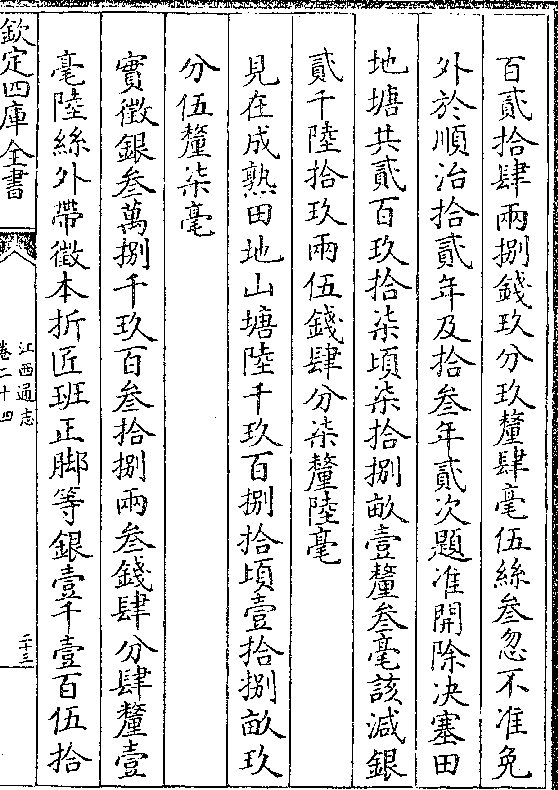 百貳拾肆兩捌錢玖分玖釐肆毫伍絲叁忽不准免
外於順治拾貳年及拾叁年貳次題准開除决塞田
地塘共貳百玖拾柒頃柒拾捌畝壹釐叁毫該減銀
貳千陸拾玖兩伍錢肆分柒釐陸毫
見在成熟田地山塘陸千玖百捌拾頃壹拾捌畝玖
分伍釐柒毫
實徵銀叁萬捌千玖百叁拾捌兩叁錢肆分肆釐壹
毫陸絲外帶徵本折匠班正脚等銀壹千壹百伍拾
欽定四庫全書
江西通志
卷二十四
二十三